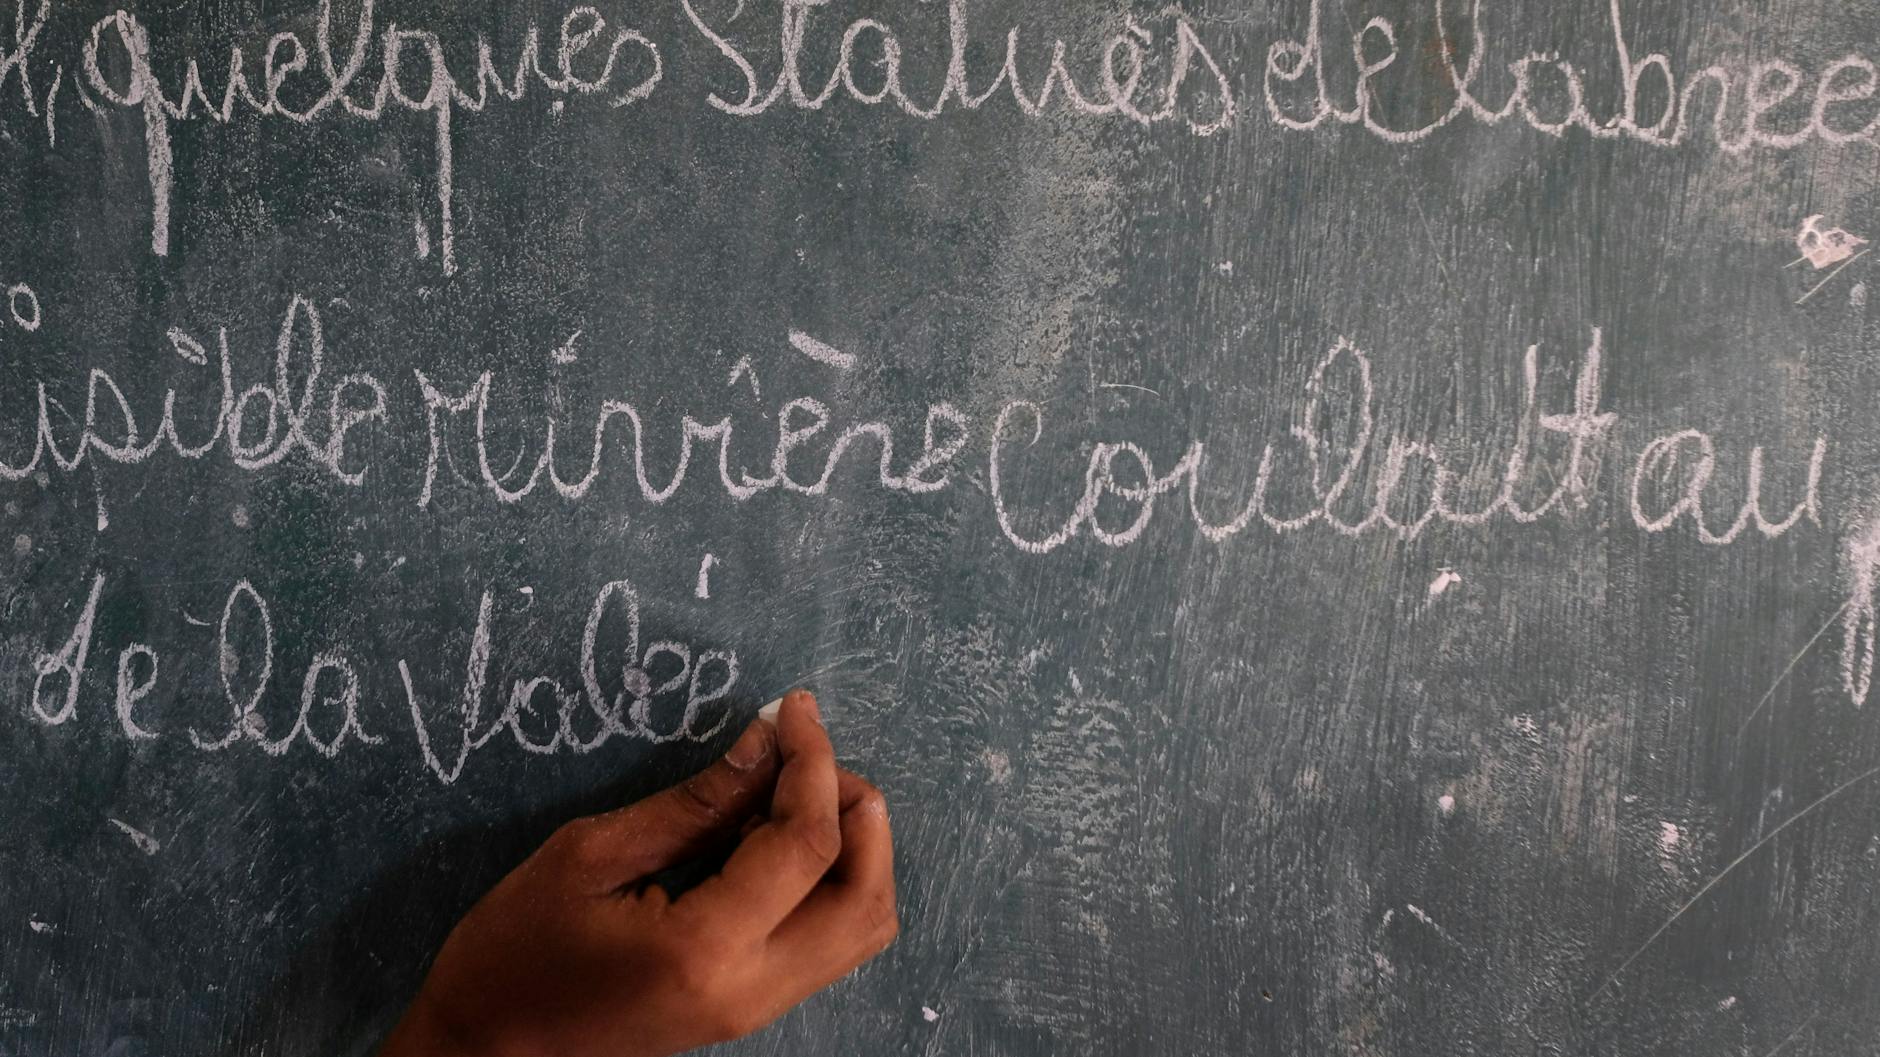 quelques Statués de labree
isible rivière Coulait au
de la Valée